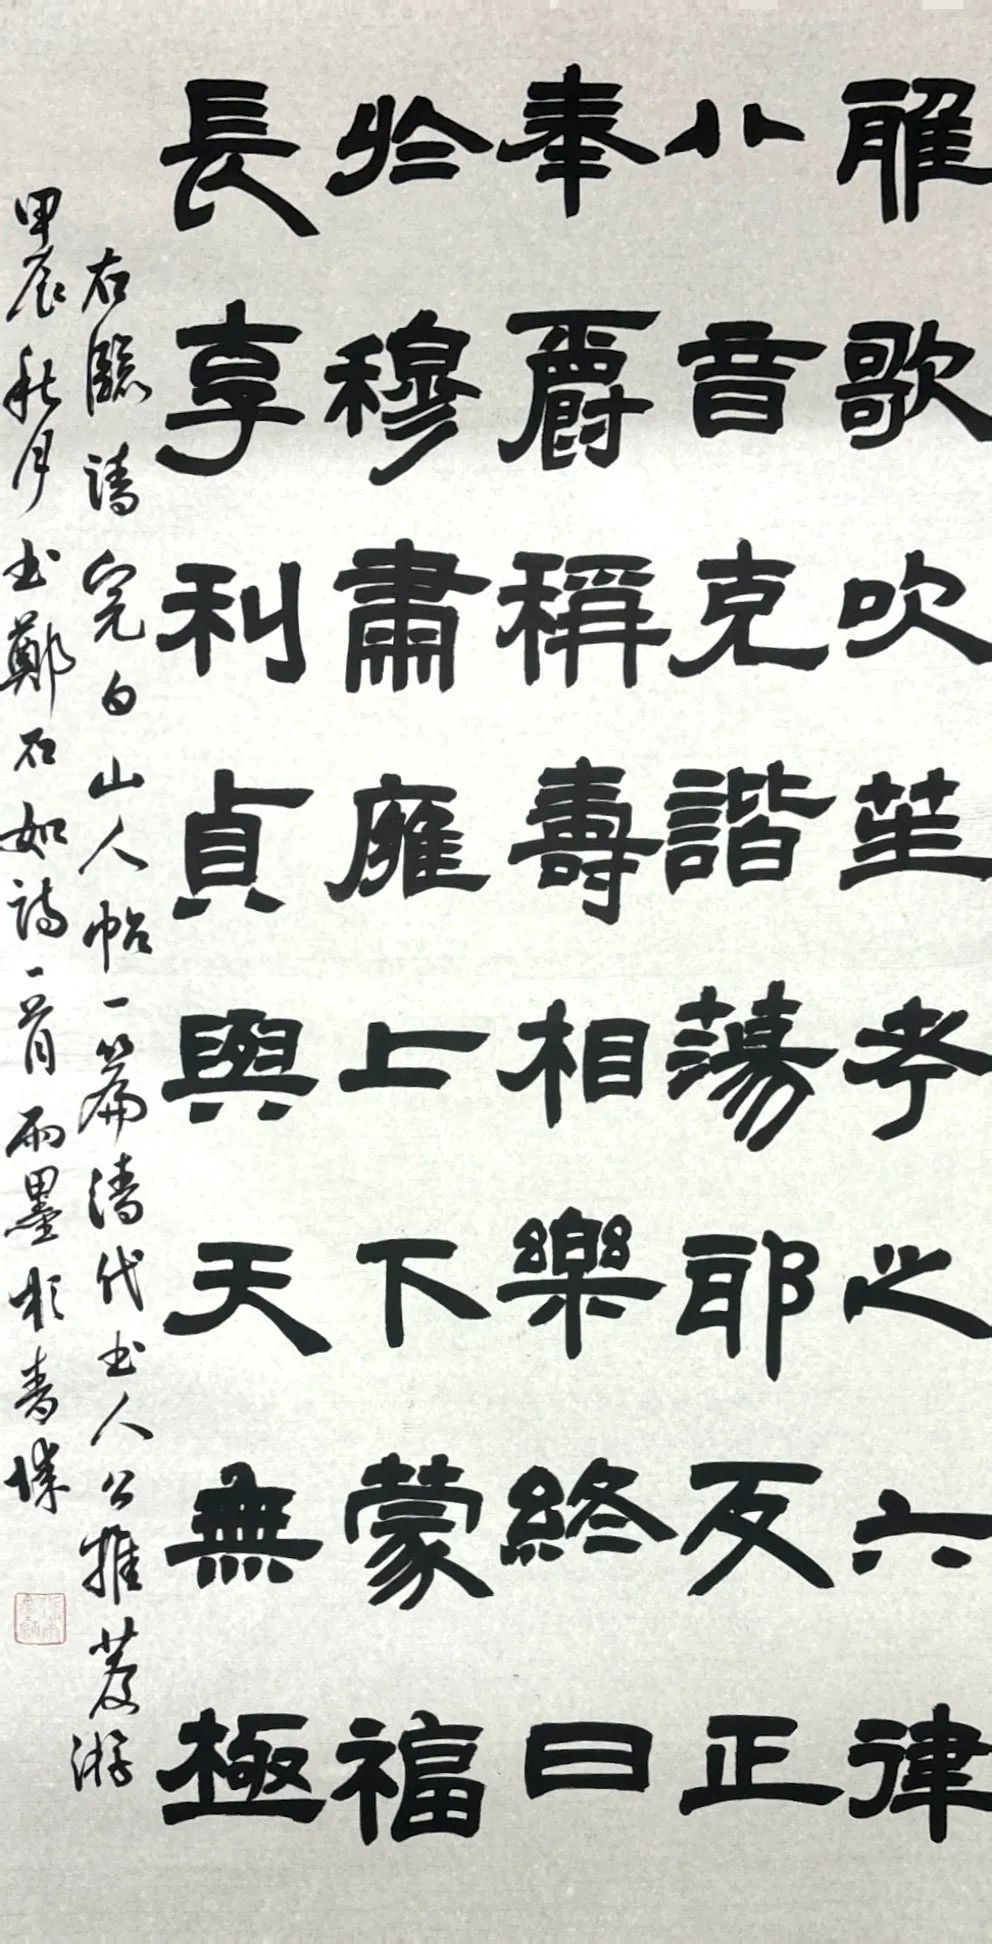 雅歌吹笙考之六律
八音克諧蕩耶反正
奉爵稱壽相樂終日
於穆肅廱上下蒙福
長享利貞與天無極
右臨清完白山人帖一篇清代书人公推
甲辰秋月书鄭石如詩一首雨墨於青